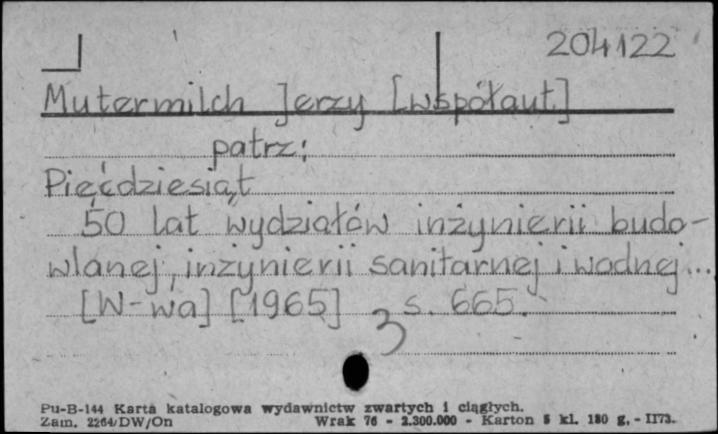 204122
Mutermilch Jerzy [współaut.]
patrz:
Pięćdziesiąt
50 lat wydziałów inżynierii budo-
wlanej, inżynierii sanitarnej i wodnej...
[W-wa] [1965] s. 665.
3
Pu-B-144 Karta katalogowa wydawnictw zwartych i ciągłych.
Zam. 2264/DW/On Wrak 76 - 2.300.000 - Karton 5 kl. 180 g. - II73.